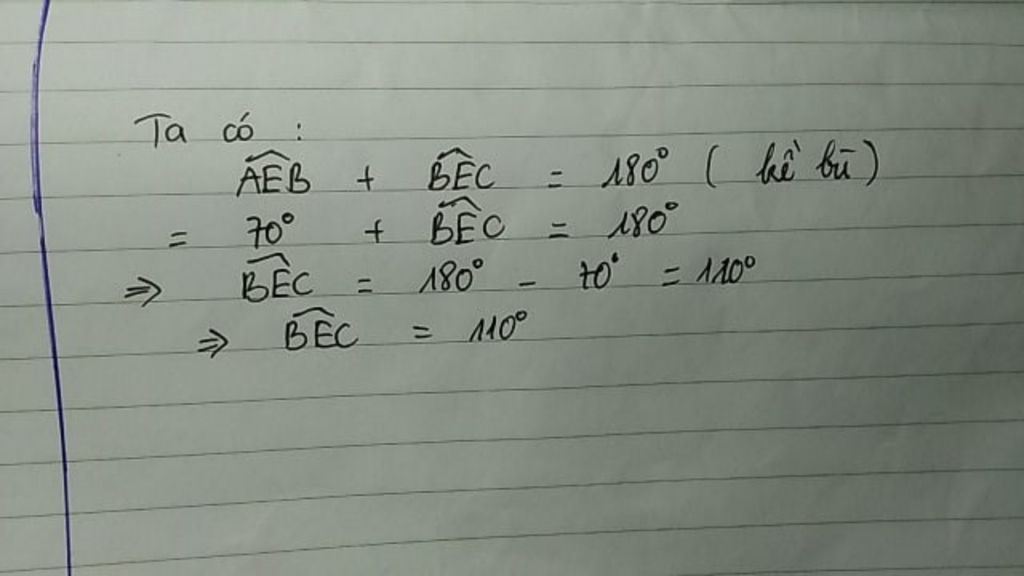 Ta có :
$\widehat{AEB}$ + $\widehat{BEC}$ = 180° ( kề bù )
= 70° + $\widehat{BEC}$ = 180°
⇒ $\widehat{BEC}$ = 180° - 70° = 110°
⇒ $\widehat{BEC}$ = 110°